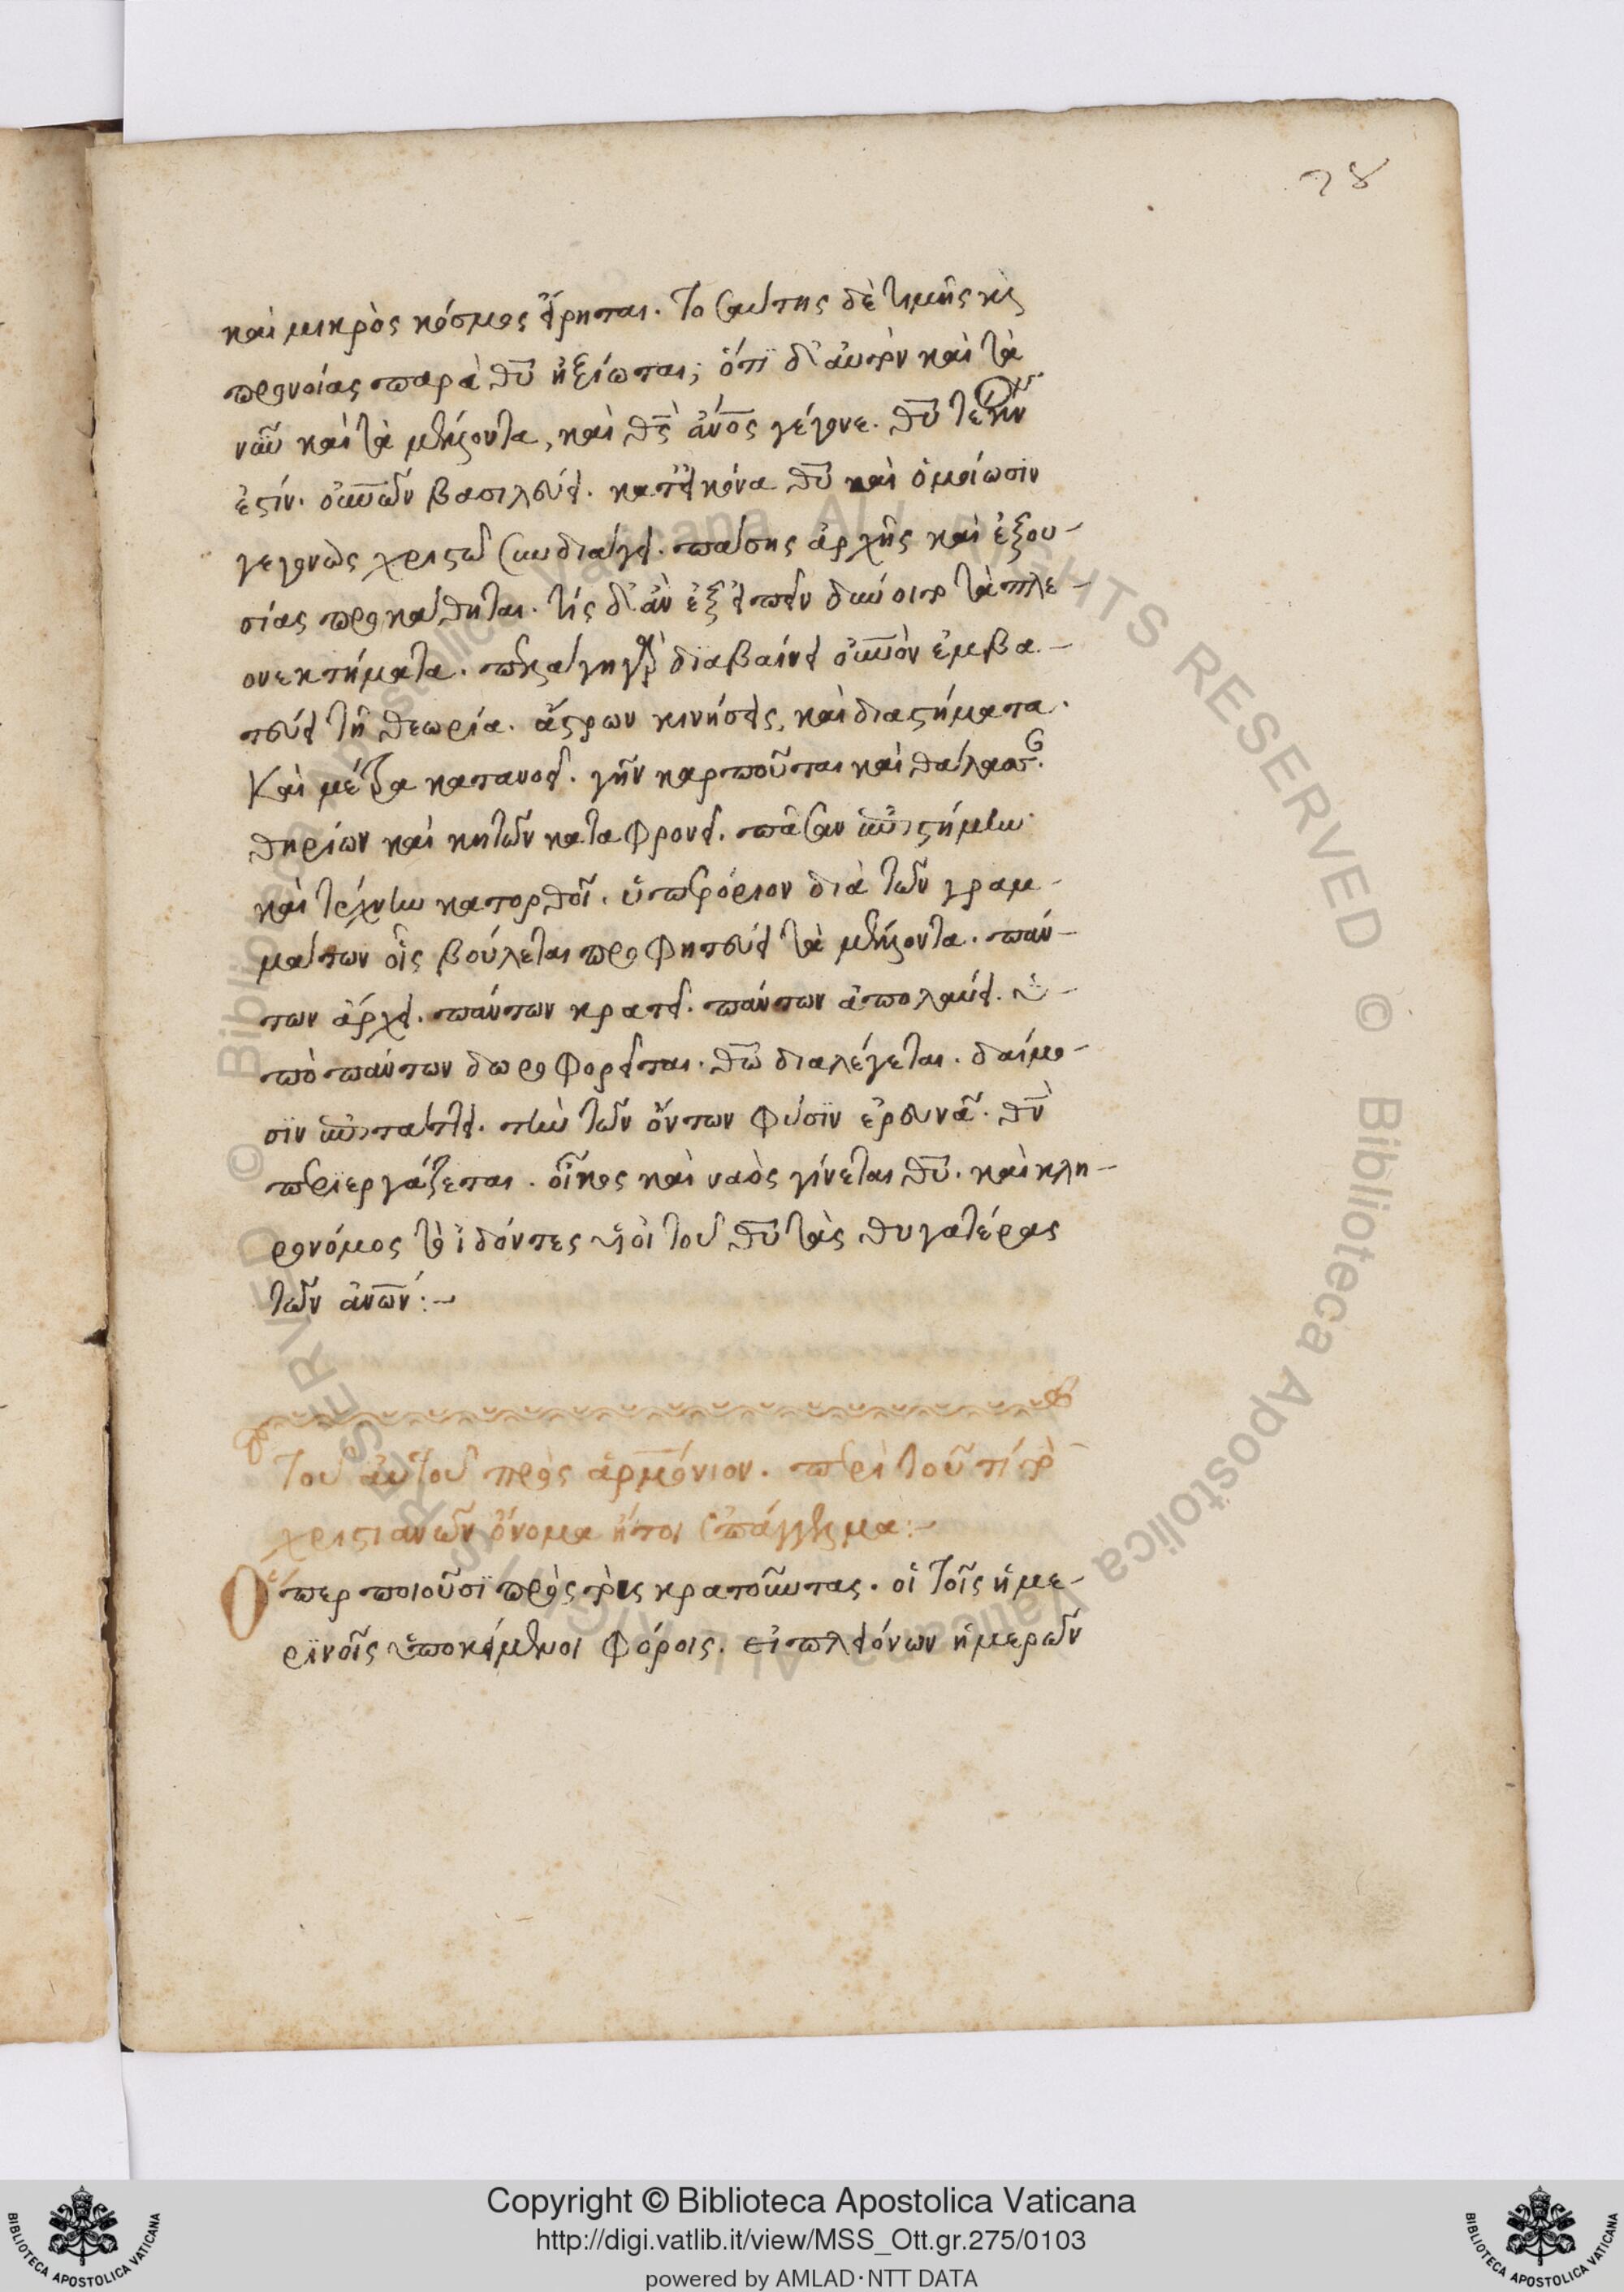 78
καὶ μικρὸς κόσμος εἴρηται. τοσαύτης δὲ τιμῆς κ̀
προνοίας παρὰ θῦ ἠξίωται; ὅτι δι' αὐτὸν καὶ τὰ
νῦν καὶ τὰ μέλλοντα, καὶ θς̅ ἄνο̅ς γέγονε. θῦ τέκν
ἐστίν. οὐνῶν βασιλεύει. κατ' εἰκόνα θῦ καὶ ὁμοίωσιν
γεγονὼς χριστῶ συνδιάγει. πάσης ἀρχῆς καὶ ἐξου-
σίας προκάθηται. τίς δ' ἂν ἐξειπεῖν δύναιτο τὰ πλε-
ονεκτήματα. πελάγη γὰρ διαβαίνει οὐνὸν ἐμβα-
τεύει τῆ θεωρία. ἄστρων κινήσεις, καὶ διαστήματα.
καὶ μέτρα κατανοεῖ. γῆν καρποῦται καὶ θάλασσ.
θηρίων καὶ κητῶν καταφρονεῖ. πᾶσαν ἐπιστήμην
καὶ τέχνην κατορθοῖ. ὑπερόριον διὰ τῶν γραμ-
μάτων οἷς βούλεται προφητεύει τὰ μέλλοντα. πάν-
των ἄρχει. πάντων κρατεῖ. πάντων ἀπολαύει. ὑ-
πὸ πάντων δωροφορεῖται. θῶ διαλέγεται. δαίμο-
σιν ἐπιτάττει. τὴν τῶν ὄντων φύσιν ἐρευνᾶ. θν̅
περιεργάζεται. οἶκος καὶ ναὸς γίνεται θῦ. καὶ κλη-
ρονόμος τὸ ἰδόντες υἱοὶ τοῦ θῦ τὰς θυγατέρας
τῶν ἀνω̅ν:-
Τοῦ αὐτοῦ πρὸς ἁρμόνιον. περὶ τοῦ τί τὸ
χριστιανῶν ὄνομα ἤτοι ἐπάγγελμα:-
Ὅπερ ποιοῦσι πρὸς τοὺς κρατοῦντας. οἱ τοῖς ἡμε-
ρινοῖς ὑποκείμενοι φόροις. εἰ πλειόνων ἡμερῶν
Copyright © Biblioteca Apostolica Vaticana
http://digi.vatlib.it/view/MSS_Ott.gr.275/0103
powered by AMLAD·NTT DATA